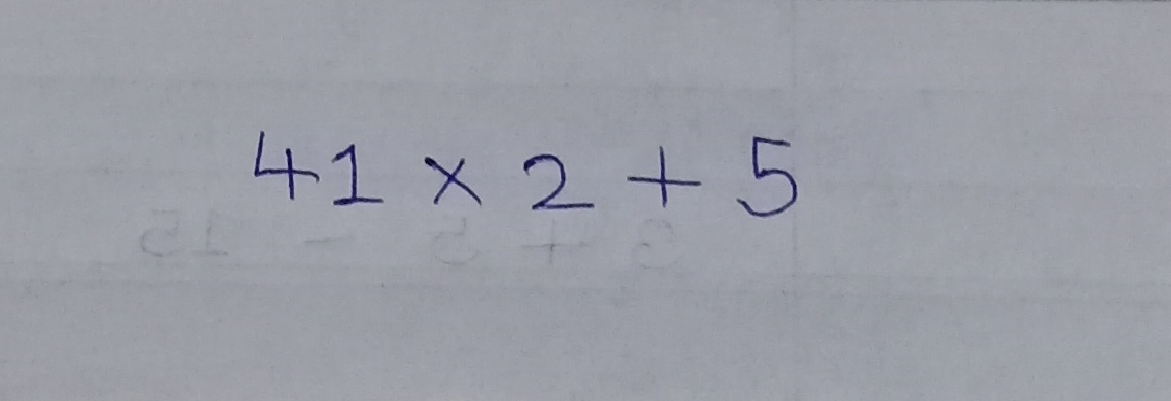 41 × 2 + 5